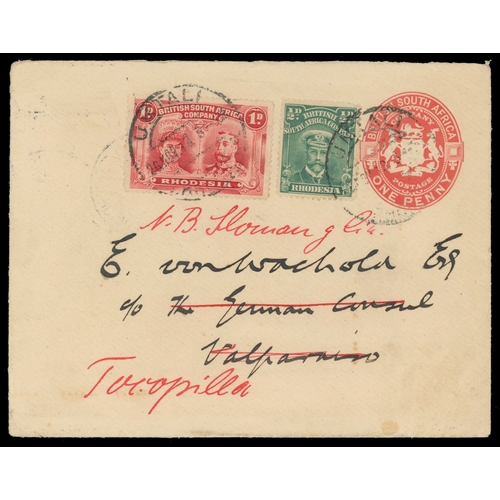 UMTALI
1D BRITISH SOUTH AFRICA COMPANY 1D
RHODESIA
½D BRITISH SOUTH AFRICA COMPANY ½D
RHODESIA
BRITISH SOUTH AFRICA COMPANY
POSTAGE
ONE PENNY
N. B. Sloman & Cia.
E. von Wachold Esq
c/o The German Consul
Valparaiso
Tocopilla